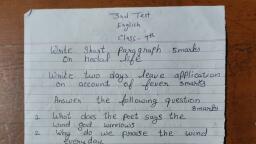 3nd Test
English
Class - 9th
Write Short paragraph 5marks
On Hostal life
Write two days leave application
on account of fever 5marks
Answer the following question
8marks
1. What does the poet says the
wind god winnows
2. Why do we praise the wind
everyday